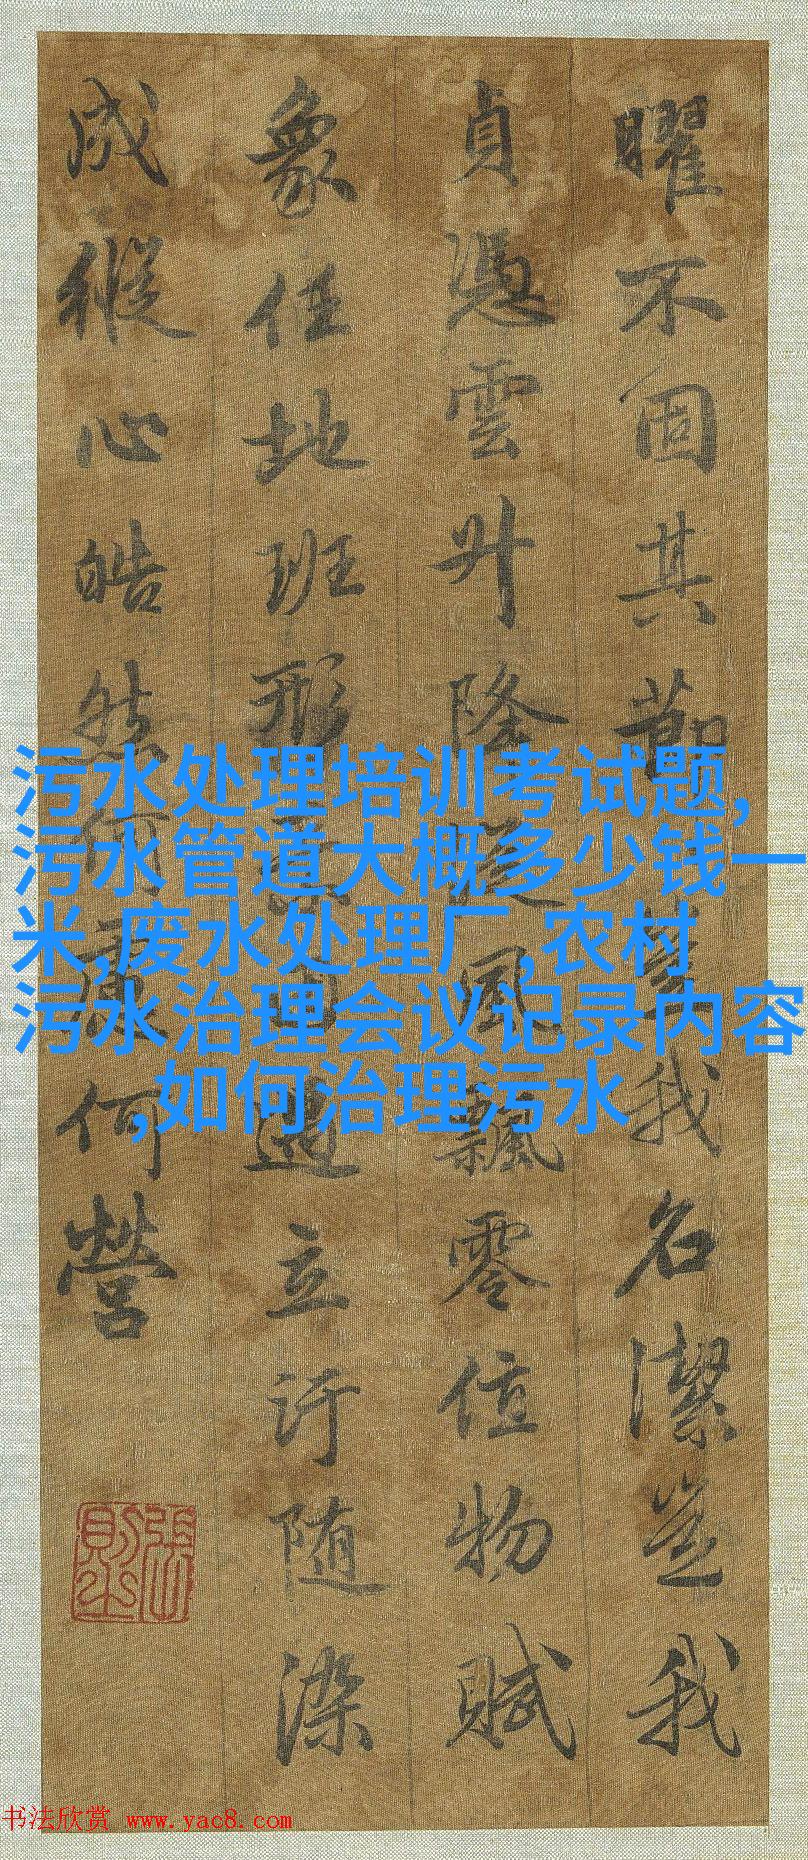 曜不固其節豈我名潔豈我
貞憑雲升降從風飄零值物賦
象任地班形素因遇立汙隨染
成縱心皓然何慮何營
污水处理培训考试题,
污水管道大概多少钱一
米,废水处理厂,农村
污水治理会议记录内容
,如何治理污水
书法欣赏 www.yac8.com